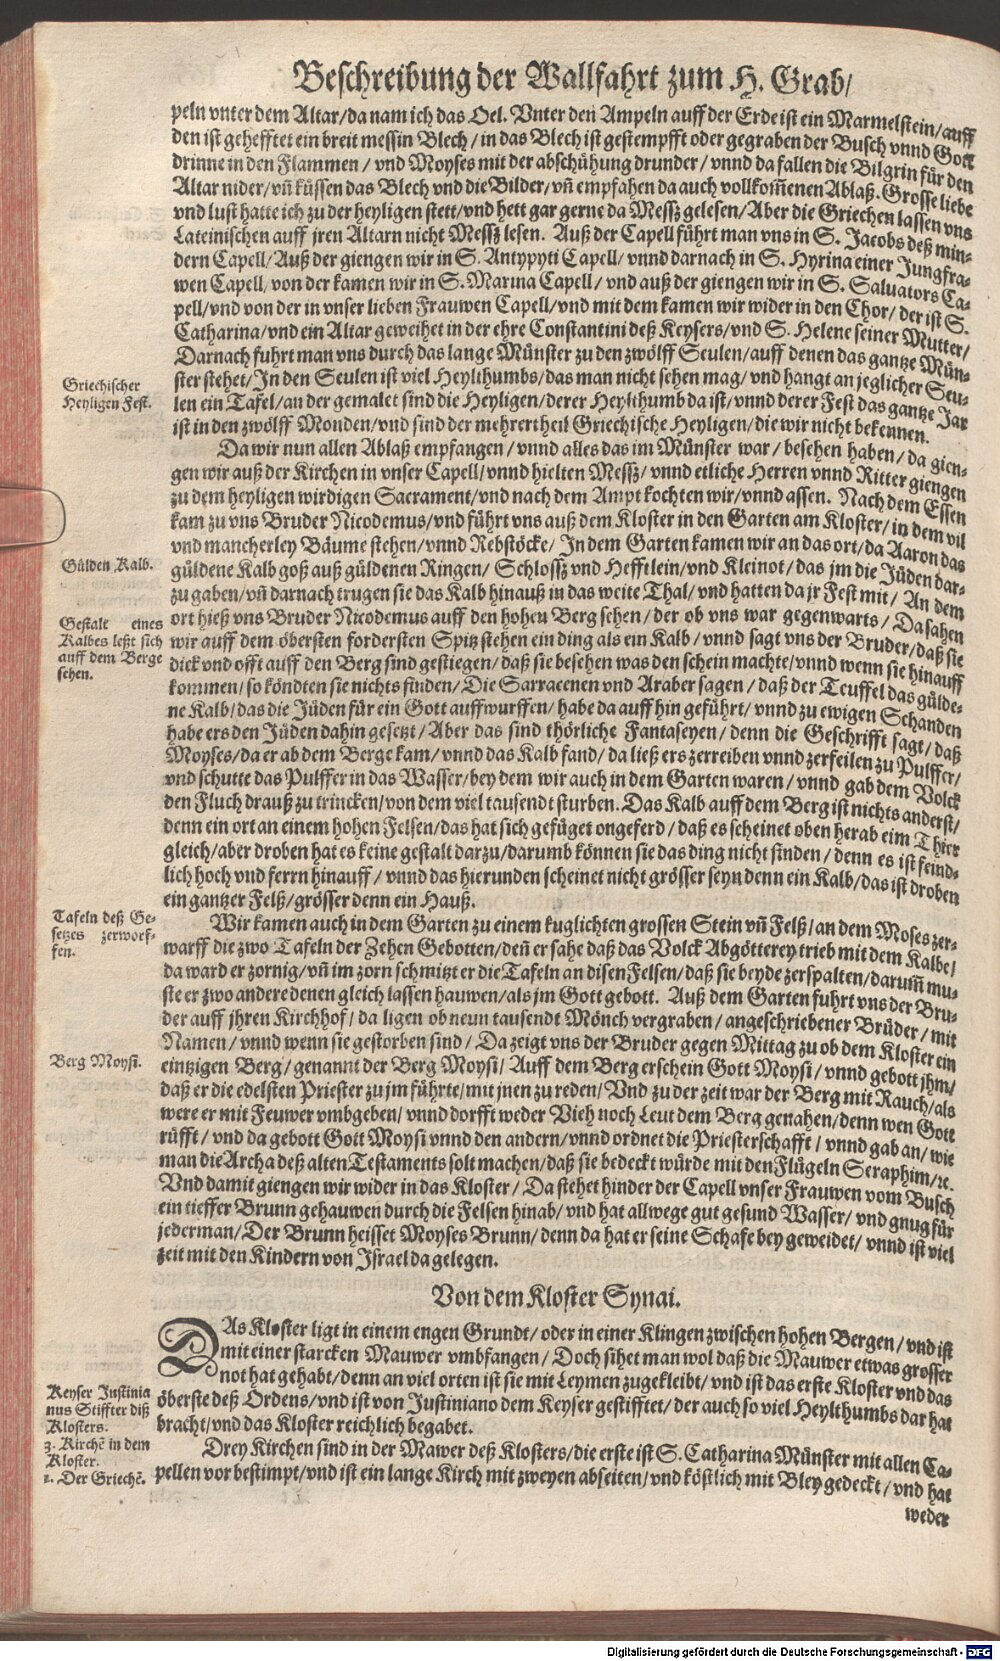 Beschreibung der Wallfahrt zum H. Grab/
peln vnter dem Altar/da nam ich das Oel. Vnter den Ampeln auff der Erde ist ein Marmelstein/auff
den ist gehefftet ein breit messin Blech/in das Blech ist gestempfft oder gegraben der Busch vnnd Gott
drinne in den Flammen/vnd Moyses mit der abschühung drunder/vnnd da fallen die Bilgrin für den
Altar nider/vñ küssen das Blech vnd die Bilder/vñ empfahen da auch vollkom̃enen Ablaß. Grosse liebe
vnd lust hatte ich zu der heyligen stett/vnd hett gar gerne da Messz gelesen/Aber die Griechen lassen vns
Lateinischen auff jren Altarn nicht Messz lesen. Auß der Capell führt man vns in S. Jacobs deß min-
dern Capell/Auß der giengen wir in S. Antypyti Capell/vnnd darnach in S. Hyrina einer Jungfra-
wen Capell/von der kamen wir in S. Marina Capell/vnd auß der giengen wir in S. Saluators Ca-
pell/vnd von der in vnser lieben Frauwen Capell/vnd mit dem kamen wir wider in den Chor/der ist S.
Catharina/vnd ein Altar geweihet in der ehre Constantini deß Keysers/vnd S. Helene seiner Mutter/
Darnach fuhrt man vns durch das lange Münster zu den zwölff Seulen/auff denen das gantze Mün-
ster stehet/In den Seulen ist viel Heylthumbs/das man nicht sehen mag/vnd hangt an jeglicher Seu-
Griechischer
Heyligen Fest.
len ein Tafel/an der gemalet sind die Heyligen/derer Heylthumb da ist/vnnd derer Fest das gantze Jar
ist in den zwölff Monden/vnd sind der mehrertheil Griechische Heyligen/die wir nicht bekennen.
Da wir nun allen Ablaß empfangen/vnnd alles das im Münster war/besehen haben/da gien-
gen wir auß der Kirchen in vnser Capell/vnnd hielten Messz/vnnd etliche Herren vnnd Ritter giengen
zu dem heyligen wirdigen Sacrament/vnd nach dem Ampt kochten wir/vnnd assen. Nach dem Essen
kam zu vns Bruder Nicodemus/vnd führt vns auß dem Kloster in den Garten am Kloster/in dem vil
vnd mancherley Bäume stehen/vnnd Rebstöcke/In dem Garten kamen wir an das ort/da Aaron das
Gülden Kalb.
güldene Kalb goß auß güldenen Ringen/Schlossz vnd Hefftlein/vnd Kleinot/das jm die Jüden dar-
zu gaben/vñ darnach trugen sie das Kalb hinauß in das weite Thal/vnd hatten da jr Fest mit/An dem
Gestalt eines
Kalbes leßt sich
auff dem Berge
sehen.
ort hieß vns Bruder Nicodemus auff den hohen Berg sehen/der ob vns war gegenwarts/Da sahen
wir auff dem öbersten fordersten Spitz stehen ein ding als ein Kalb/vnnd sagt vns der Bruder/daß sie
dick vnd offt auff den Berg sind gestiegen/daß sie besehen was den schein machte/vnnd wenn sie hinauff
kommen/so köndten sie nichts finden/Die Sarracenen vnd Araber sagen/daß der Teuffel das gülde-
ne Kalb/das die Jüden für ein Gott auffwurffen/habe da auff hin geführt/vnnd zu ewigen Schanden
habe ers den Jüden dahin gesetzt/Aber das sind thörliche Fantaseyen/denn die Geschrifft sagt/daß
Moyses/da er ab dem Berge kam/vnnd das Kalb fand/da ließ ers zerreiben vnnd zerfeilen zu Pulffer/
vnd schutte das Pulffer in das Wasser/bey dem wir auch in dem Garten waren/vnnd gab dem Volck
den Fluch drauß zu trincken/von dem viel tausendt sturben. Das Kalb auff dem Berg ist nichts anderst/
denn ein ort an einem hohen Felsen/das hat sich gefüget ongeferd/daß es scheinet oben herab eim Thier
gleich/aber droben hat es keine gestalt darzu/darumb können sie das ding nicht finden/denn es ist feind-
lich hoch vnd ferrn hinauff/vnnd das hierunden scheinet nicht grösser seyn denn ein Kalb/das ist droben
ein gantzer Felß/grösser denn ein Hauß.
Tafeln deß Ge-
setzes zerworf-
fen.
Wir kamen auch in dem Garten zu einem kuglichten grossen Stein vñ Felß/an dem Moses zer-
warff die zwo Tafeln der Zehen Gebotten/deñ er sahe daß das Volck Abgötterey trieb mit dem Kalbe/
da ward er zornig/vñ im zorn schmitzt er die Tafeln an disen Felsen/daß sie beyde zerspalten/darum̃ mu-
ste er zwo andere denen gleich lassen hauwen/als jm Gott gebott. Auß dem Garten fuhrt vns der Bru-
der auff jhren Kirchhof/da ligen ob neun tausendt Mönch vergraben/angeschriebener Brüder/mit
Namen/vnnd wenn sie gestorben sind/Da zeigt vns der Bruder gegen Mittag zu ob dem Kloster ein
Berg Moysi.
eintzigen Berg/genannt der Berg Moysi/Auff dem Berg erschein Gott Moysi/vnnd gebott jhm/
daß er die edelsten Priester zu jm führte/mit jnen zu reden/Vnd zu der zeit war der Berg mit Rauch/als
were er mit Feuwer vmbgeben/vnnd dorfft weder Vieh noch Leut dem Berg genahen/denn wen Gott
rüfft/vnd da gebott Gott Moysi vnnd den andern/vnnd ordnet die Priesterschafft/vnnd gab an/wie
man die Archa deß alten Testaments solt machen/daß sie bedeckt würde mit den Flügeln Seraphim/ꝛc.
Vnd damit giengen wir wider in das Kloster/Da stehet hinder der Capell vnser Frauwen vom Busch
ein tieffer Brunn gehauwen durch die Felsen hinab/vnd hat allwege gut gesund Wasser/vnd gnug für
jederman/Der Brunn heisset Moyses Brunn/denn da hat er seine Schafe bey geweidet/vnnd ist viel
zeit mit den Kindern von Israel da gelegen.
Von dem Kloster Synai.
DAs Kloster ligt in einem engen Grundt/oder in einer Klingen zwischen hohen Bergen/vnd ist
mit einer starcken Mauwer vmbfangen/Doch sihet man wol daß die Mauwer etwas grosser
not hat gehabt/denn an viel orten ist sie mit Leymen zugekleibt/vnd ist das erste Kloster vnd das
Keyser Justinia
nus Stiffter diß
Klosters.
öberste deß Ordens/vnd ist von Justiniano dem Keyser gestifftet/der auch so viel Heylthumbs dar hat
bracht/vnd das Kloster reichlich begabet.
3. Kirchẽ in dem
Kloster.
1. Der Griechẽ.
Drey Kirchen sind in der Mawer deß Klosters/die erste ist S. Catharina Münster mit allen Ca-
pellen vor bestimpt/vnd ist ein lange Kirch mit zweyen abseiten/vnd köstlich mit Bley gedeckt/vnd hat
weder
Digitalisierung gefördert durch die Deutsche Forschungsgemeinschaft - DFG